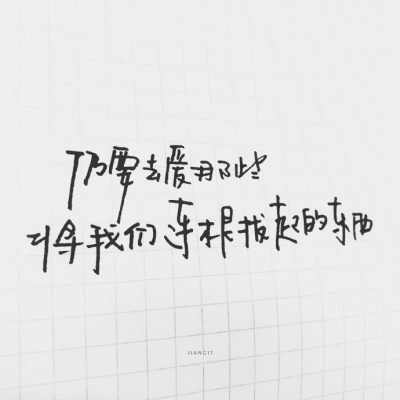 仍要去爱那些
将我们连根拔起的东西
JIANGIT